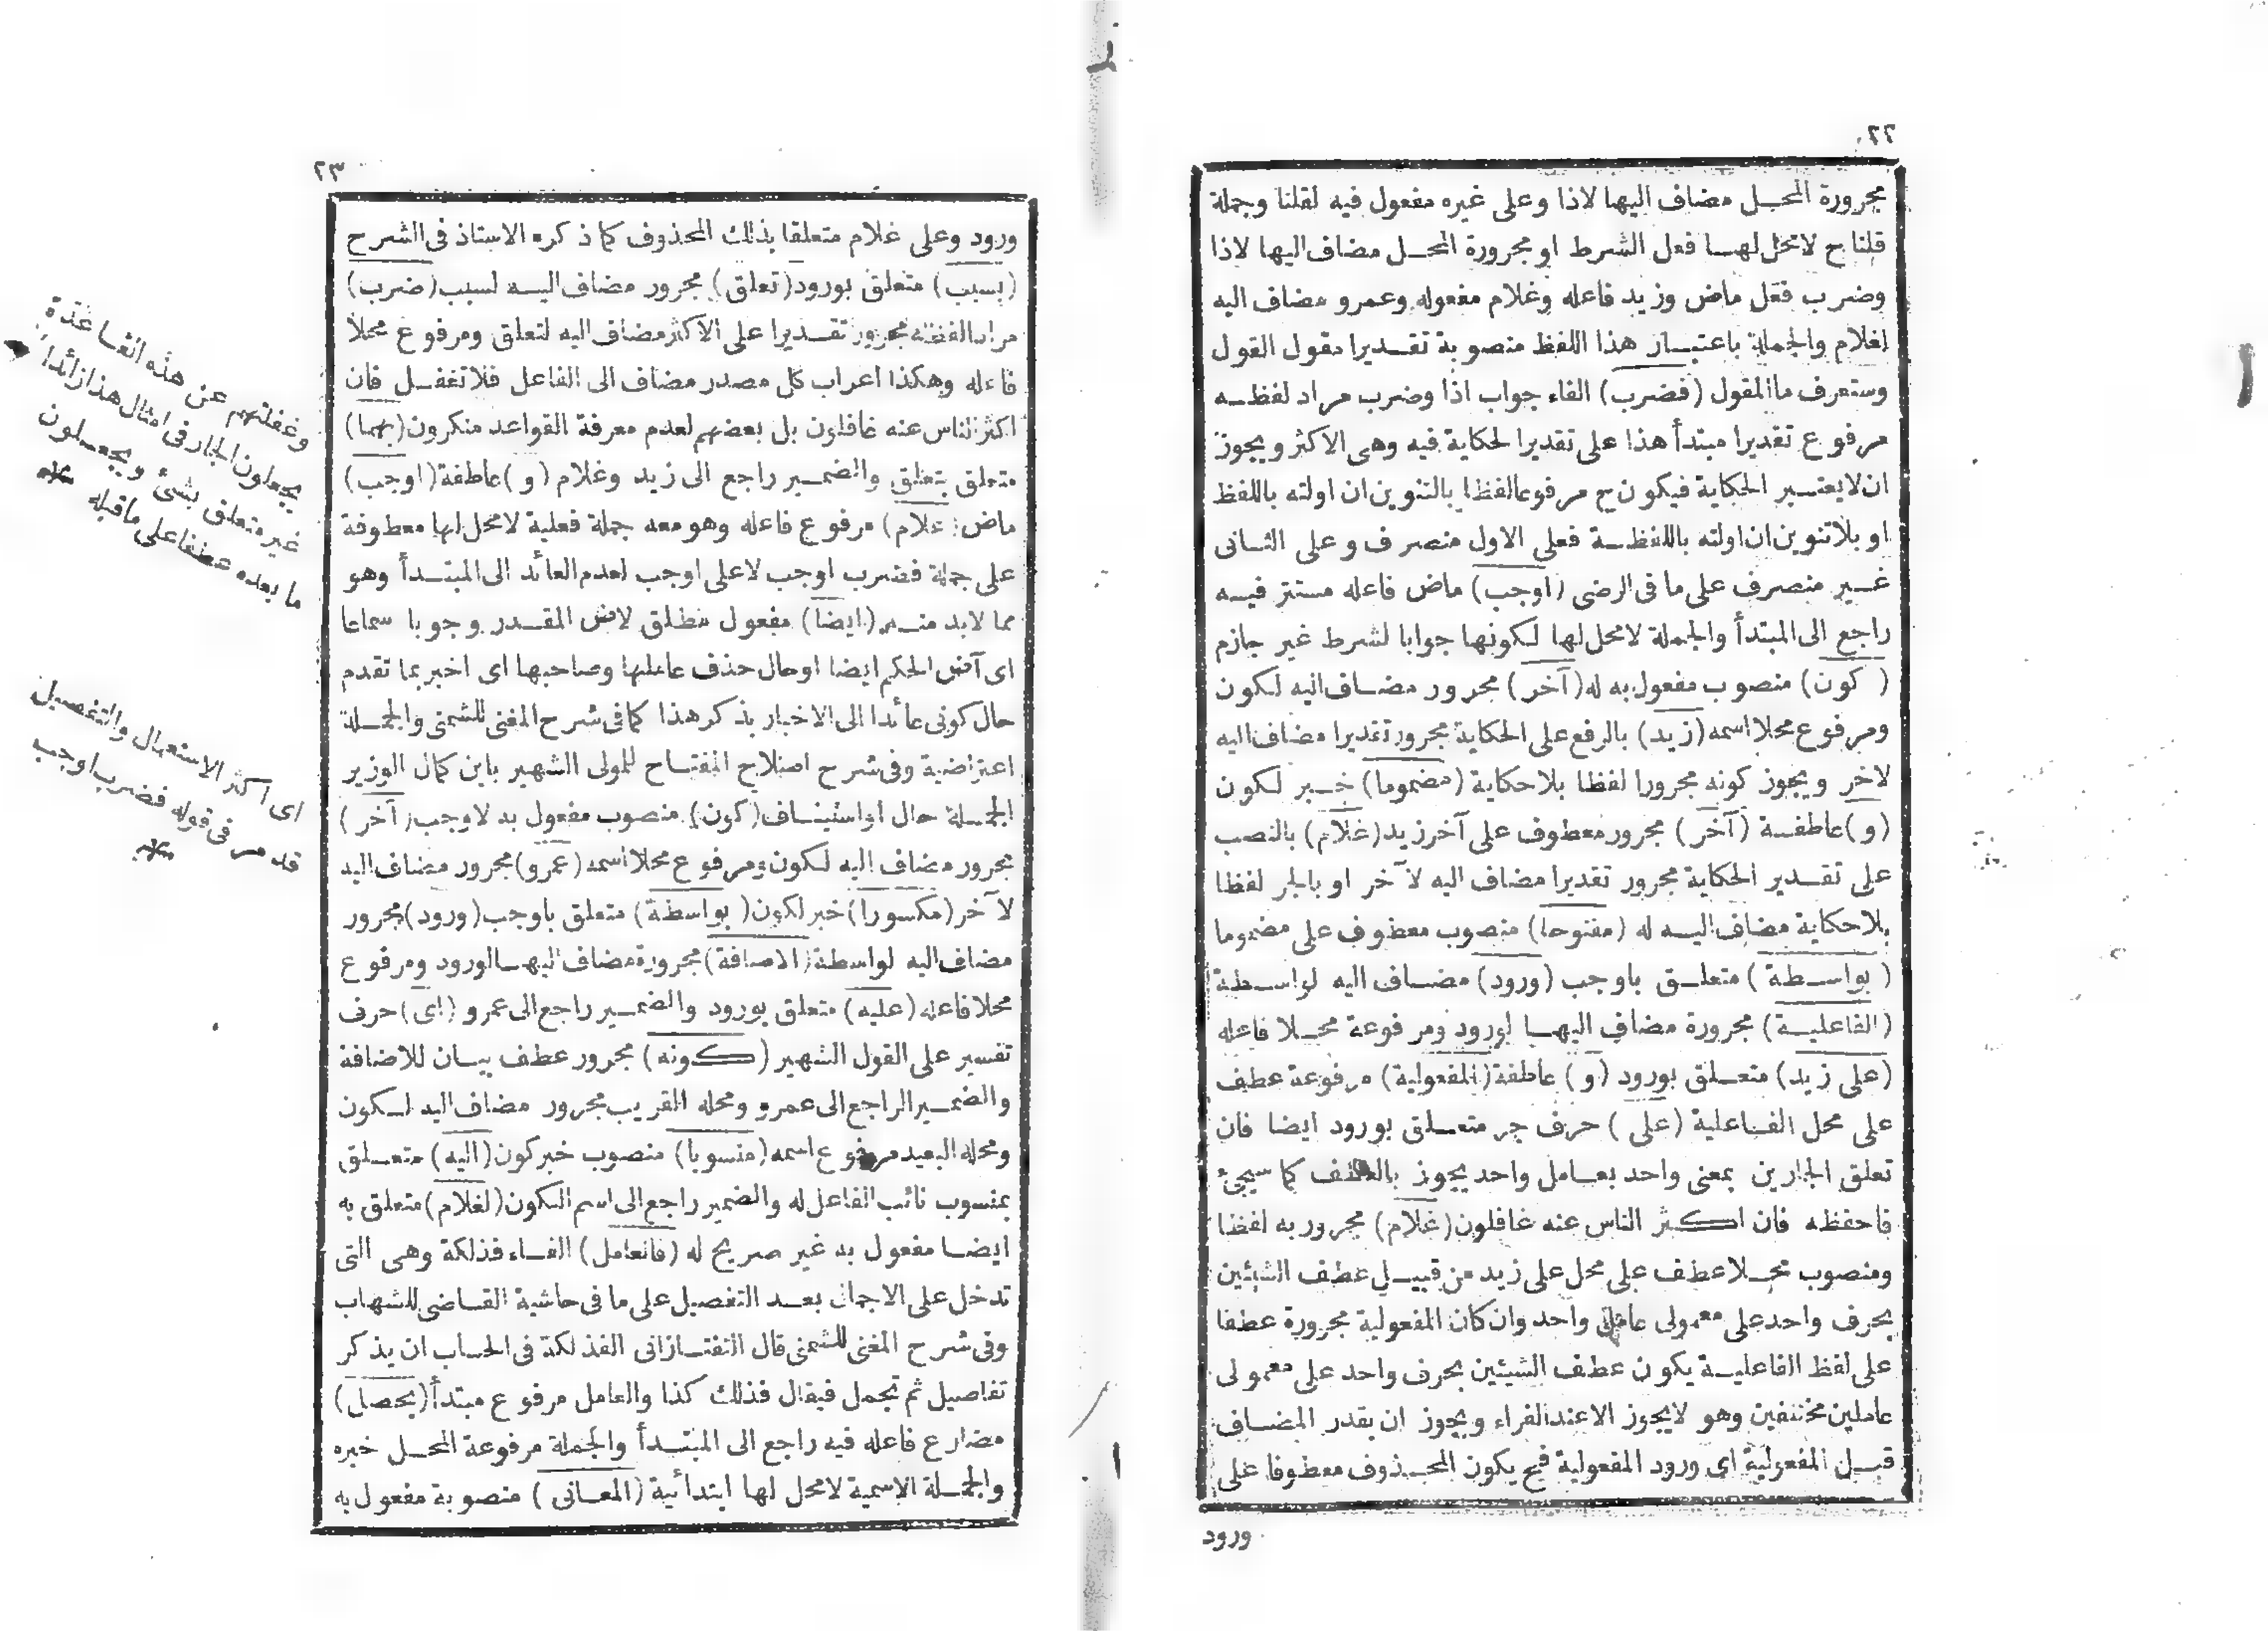 ٢٢
مجرورة المحل مضاف اليها لاذا وعلى غيره مفعول فيه لقلنا وجملة
قلنا ح لا محل لها فعل الشرط او مجرورة المحل مضاف اليها لاذا
وضرب فعل ماض وزيد فاعله وغلام مفعوله وعمرو مضاف اليه
لغلام والجملة باعتبار هذا اللفظ منصوبة تقديرا مقول القول
وستعرف ما المقول (فضرب) الفاء جواب اذا وضرب مراد لفظه
مرفوع تقديرا مبتدأ هذا على تقدير الحكاية فيه وهى الاكثر ويجوز
ان لا يعتبر الحكاية فيكون ح مرفوعا لفظا بالتنوين ان اولته باللفظ
او بلا تنوين ان اولته باللفظة فعلى الاول منصرف وعلى الثانى
غير منصرف على ما فى الرضى (اوجب) ماض فاعله مستتر فيه
راجع الى المبتدأ والجملة لا محل لها لكونها جوابا لشرط غير جازم
(كون) منصوب مفعول به له (آخر) مجرور مضاف اليه لكون
ومرفوع محلا اسمه (زيد) بالرفع على الحكاية مجرور تقديرا مضاف اليه
لاخر ويجوز كونه مجرورا لفظا بلا حكاية (مضموما) خبر لكون
(و) عاطفة (آخر) مجرور معطوف على آخر زيد (غلام) بالنصب
على تقدير الحكاية مجرور تقديرا مضاف اليه لآخر او بالجر لفظا
بلا حكاية مضاف اليه له (مفتوحا) منصوب معطوف على مضموما
(بواسطة) متعلق باوجب (ورود) مضاف اليه لواسطة
(الفاعلية) مجرورة مضاف اليها لورود ومرفوعة محلا فاعله
(على زيد) متعلق بورود (و) عاطفة (المفعولية) مرفوعة عطف
على محل الفاعلية (على) حرف جر متعلق بورود ايضا فان
تعلق الجارين بمعنى واحد بعامل واحد يجوز بالعطف كما سيجئ
فاحفظه فان اكثر الناس عنه غافلون (غلام) مجرور به لفظا
ومنصوب محلا عطف على محل على زيد من قبيل عطف الشيئين
بحرف واحد على معمولى عامل واحد وان كان المفعولية مجرورة عطفا
على لفظ الفاعلية يكون عطف الشيئين بحرف واحد على معمولى
عاملين مختلفين وهو لا يجوز الا عند الفراء ويجوز ان يقدر المضاف
قبل المفعولية اى ورود المفعولية فح يكون المحذوف معطوفا على
ورود
٢٣
ورود وعلى غلام متعلقا بذلك المحذوف كما ذكره الاستاذ فى الشرح
(بسبب) متعلق بورود (تعلق) مجرور مضاف اليه لسبب (ضرب)
مراد لفظه مجرور تقديرا على الاكثر مضاف اليه لتعلق ومرفوع محلا
فاعله وهكذا اعراب كل مصدر مضاف الى الفاعل فلا تغفل فان
اكثر الناس عنه غافلون بل بعضهم لعدم معرفة القواعد منكرون (بهما)
متعلق بتعلق والضمير راجع الى زيد وغلام (و) عاطفة (اوجب)
ماض (غلام) مرفوع فاعله وهو معه جملة فعلية لا محل لها معطوفة
على جملة فضرب اوجب لا على اوجب لعدم العائد الى المبتدأ وهو
مما لابد منه (ايضا) مفعول مطلق لآض المقدر وجوبا سماعا
اى آض الحكم ايضا او حال حذف عاملها وصاحبها اى اخبر بما تقدم
حال كونى عائدا الى الاخبار بذكر هذا كما فى شرح المغنى للشمنى والجملة
اعتراضية وفى شرح اصلاح المفتاح للمولى الشهير باين كمال الوزير
الجملة حال او استيناف (كون) منصوب مفعول به لاوجب (آخر)
مجرور مضاف اليه لكون ومرفوع محلا اسمه (عمرو) مجرور مضاف اليه
لآخر (مكسورا) خبر لكون (بواسطة) متعلق باوجب (ورود) مجرور
مضاف اليه لواسطة (الاضافة) مجرورة مضاف اليها لورود ومرفوع
محلا فاعله (عليه) متعلق بورود والضمير راجع الى عمرو (اى) حرف
تفسير على القول الشهير (كونه) مجرور عطف بيان للاضافة
والضمير الراجع الى عمرو ومحله القريب مجرور مضاف اليه لكون
ومحله البعيد مرفوع اسمه (منسوبا) منصوب خبر كون (اليه) متعلق
بمنسوب نائب الفاعل له والضمير راجع الى اسم الكون (لغلام) متعلق به
ايضا مفعول به غير صريح له (فالعامل) الفاء فذلكة وهى التى
تدخل على الاجمال بعد التفصيل على ما فى حاشية القاضى للشهاب
وفى شرح المغنى للشمنى قال التفتازانى الفذلكة فى الحساب ان يذكر
تفاصيل ثم تجمل فيقال فذلك كذا والعامل مرفوع مبتدأ (يحصل)
مضارع فاعله فيه راجع الى المبتدأ والجملة مرفوعة المحل خبره
والجملة الاسمية لا محل لها ابتدائية (المعانى) منصوبة مفعول به
وغفلتهم عن هذه القاعدة
يجعلون الجار فى امثال هذا زائدا
غير متعلق بشئ ويجعلون
ما بعده عطفا على ما قبله منه
اى اكثر الاستعمال والتفصيل
قد مر فى قوله فضرب اوجب
منه